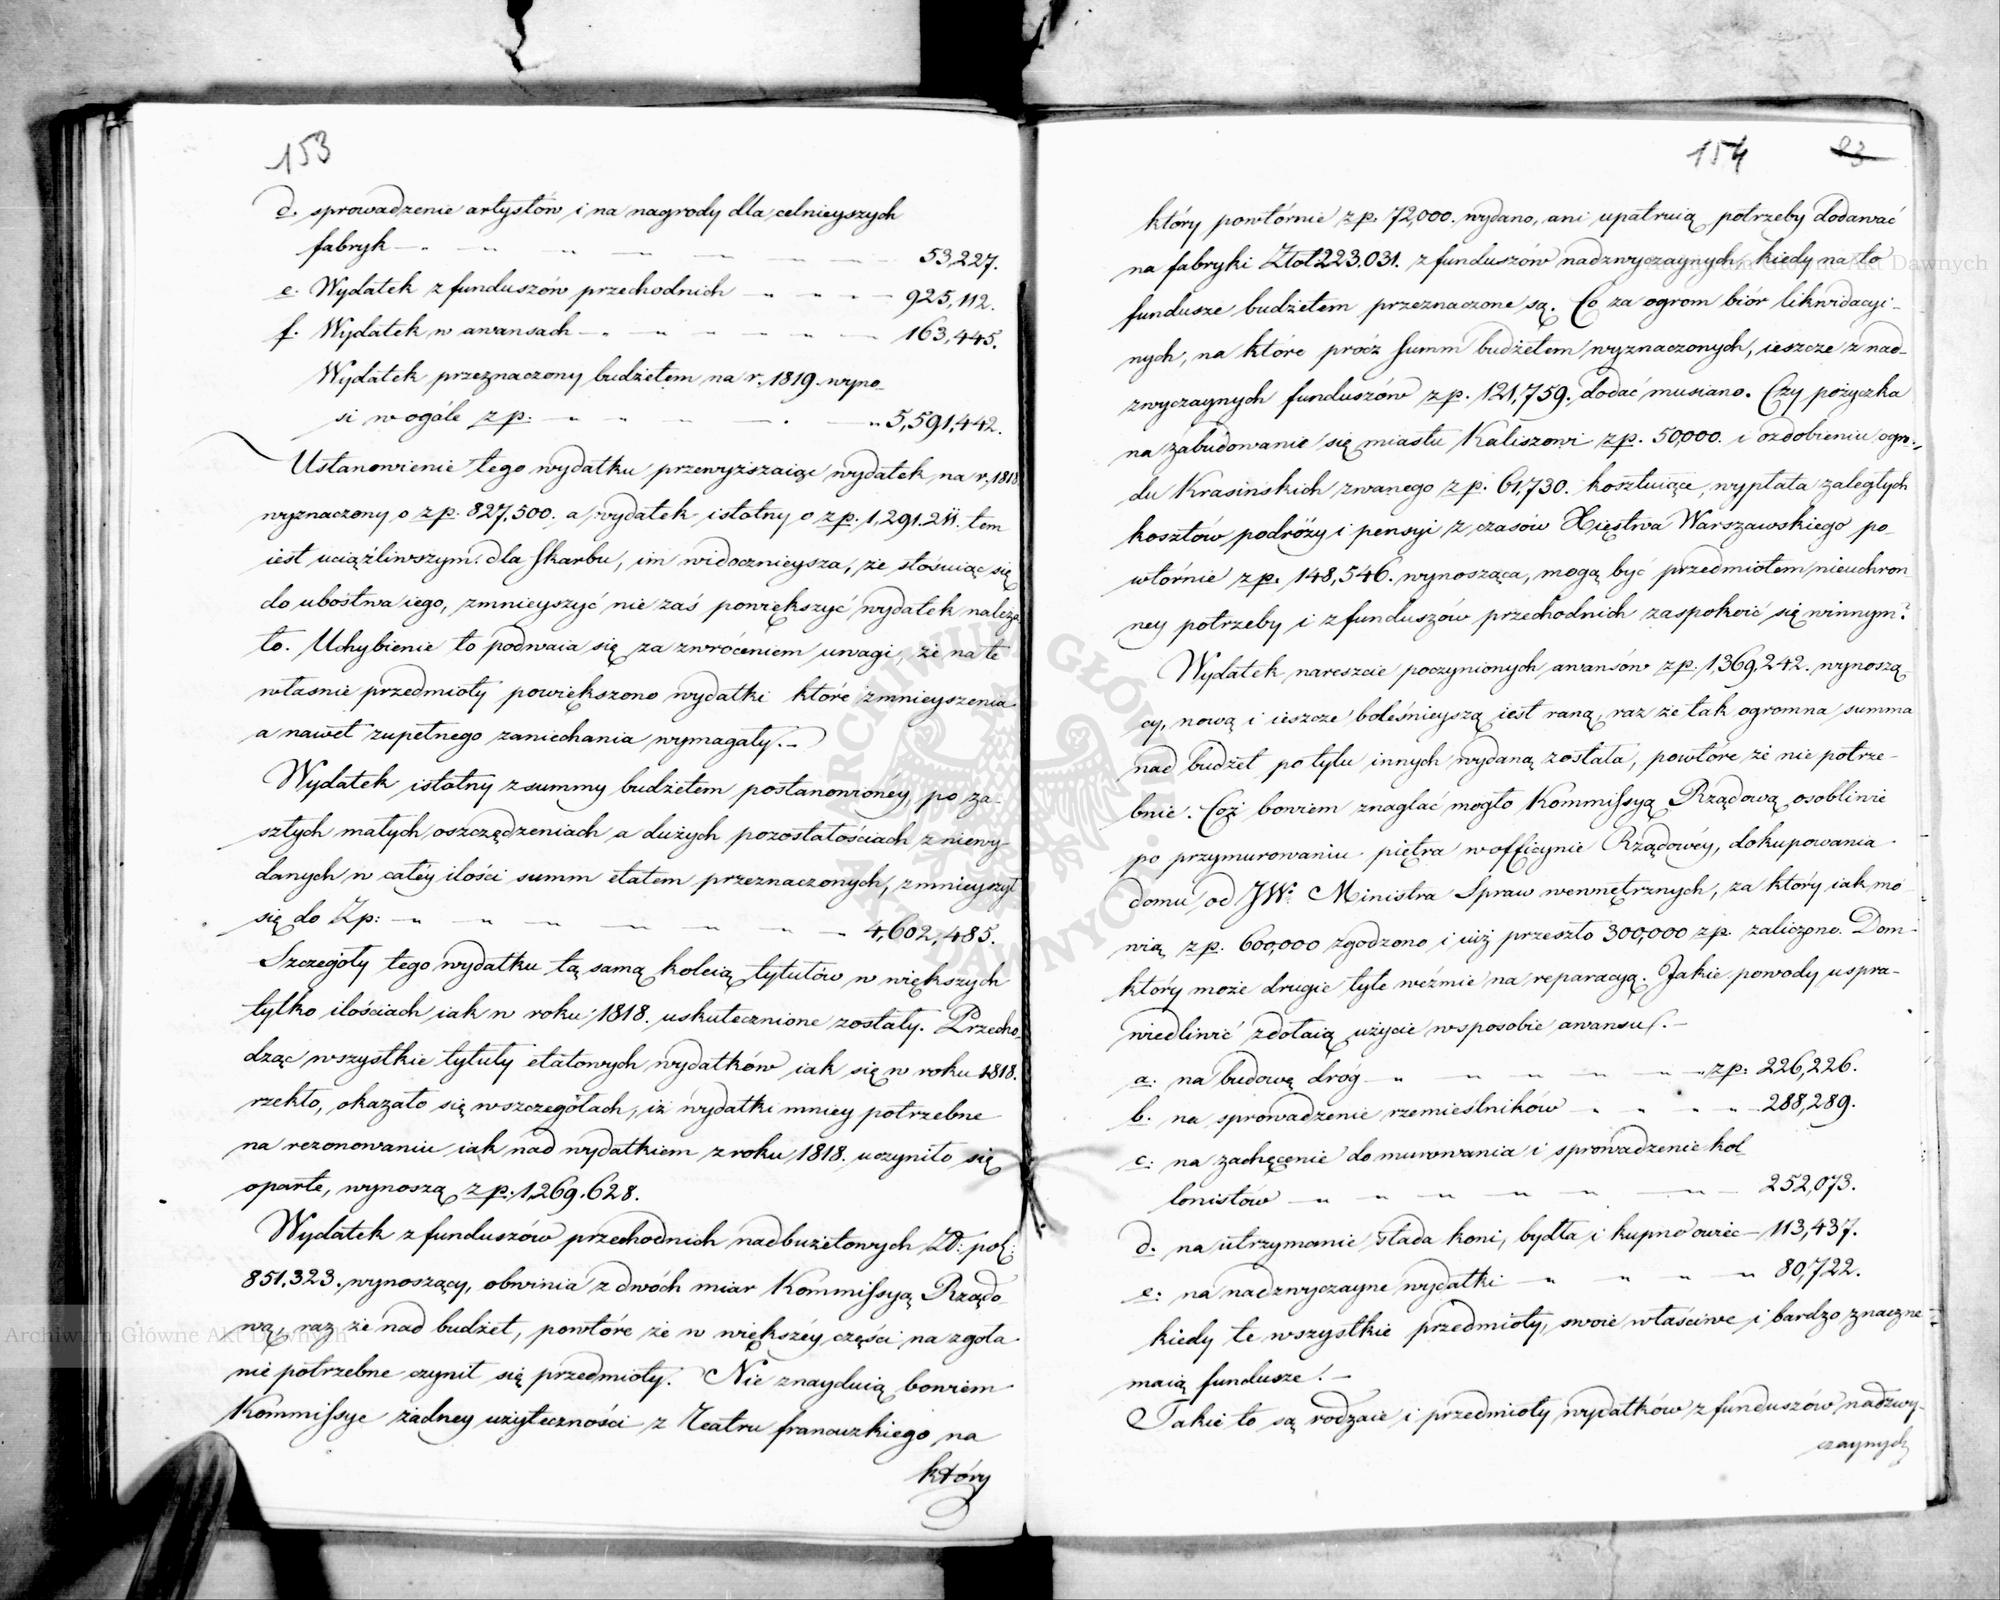 153
d. sprowadzenie artystów i na nagrody dla celnieyszych
fabryk — 53,227.
e. Wydatek z funduszów przechodnich — 925,112.
f. Wydatek w awansach — 163,445.
Wydatek przeznaczony budżetem na r. 1819. wyno-
si w ogóle zp: — 5,591,442.
Ustanowienie tego wydatku przewyższaiąc wydatek na r. 1818
wyznaczony o zp. 827,500. a wydatek istotny o zp. 1,291.211. tem
iest uciążliwszym dla skarbu, im widocznieysza, że stosuiąc się
do ubóstwa iego, zmnieyszyć nie zaś powiększyć wydatek należa
ło. Uchybienie to podwaia się za zwróceniem uwagi, że na te
własnie przedmioty powiększono wydatki które zmnieyszenia
a nawet zupełnego zaniechania wymagały. —
Wydatek istotny z summy budżetem postanowionéy, po za-
szłych małych oszczędzeniach a dużych pozostałościach z niewy-
danych w całéy ilości summ etatem przeznaczonych, zmnieyszył
się do Zp: — 4,602,485.
Szczegóły tego wydatku tą samą koleią tytułów w większych
tylko ilościach iak w roku 1818. uskutecznione zostały. Przecho-
dząc wszystkie tytuły etatowych wydatków iak się w roku 1818.
rzekło, okazało się w szczegółach, iż wydatki mniey potrzebne
na rezonowaniu iak nad wydatkiem z roku 1818. uczyniło się
oparte, wynoszą zp. 1,269.628.
Wydatek z funduszów przechodnich nadbużetowych Zł: pol:
851.323. wynoszący, obwinia z dwóch miar Kommissyą Rządo-
wą, raz że nad budżet, powtóre że w większéy części na zgoła
nie potrzebne czynił się przedmioty. Nie znayduią bowiem
Kommissye żadney użyteczności z Teatru francuzkiego na
który
154 83
który powtórnie zp. 72,000. wydano, ani upatruią potrzeby dodawać
na fabryki Złot 223.031. z funduszów nadzwyczaynych, kiedy na to
fundusze budżetem przeznaczone są. Co za ogrom biór likwidacyi-
nych, na które prócz summ budżetem wyznaczonych, ieszcze z nad-
zwyczaynych funduszów zp. 121,759. dodać musiano. Czy pożyczka
na zabudowanie się miastu Kaliszowi zp. 50,000. i ozdobieniu ogro-
du Krasińskich zwanego zp. 61,730. kosztuiące, wypłata zaległych
kosztów podróży i pensyi z czasów Xięstwa Warszawskiego po-
wtórnie zp. 148,546. wynosząca, mogą być przedmiotem nieuchron-
ney potrzeby i z funduszów przechodnich zaspokoić się winnym?
Wydatek nareszcie poczynionych awansów zp. 1,369,242. wynoszą-
cy, nową i ieszcze boleśnieyszą iest raną, raz że tak ogromna summa
nad budżet po tylu innych wydaną została, powtóre że nie potrze-
bnie. Cóż bowiem znaglać mogło Kommissyą Rządową osobliwie
po przymurowaniu piętra w officynie Rządowéy, dokupowania
domu od JW. Ministra Spraw wewnętrznych, za który iak mó-
wią zp. 600,000 zgodzono i iuż przeszło 300,000 zp. zaliczono. Dom
który może drugie tyle weźmie na reparacyą. Jakie powody uspra-
wiedliwić zdołaią użycie w sposobie awansu. —
a. na budowę dróg — zp. 226,226.
b. na sprowadzenie rzemieślników — 288,289.
c. na zachęcenie do murowania i sprowadzenie kol
lonistów — 252,073.
d. na utrzymanie stada koni, bydła i kupno owiec — 113,437.
e. na nadzwyczayne wydatki — 80,722.
kiedy te wszystkie przedmioty, swoie właściwe i bardzo znaczne
maią fundusze! —
Takie to są rodzaie i przedmioty wydatków z funduszów nadzwy-
czaynych
Archiwum Główne Akt Dawnych